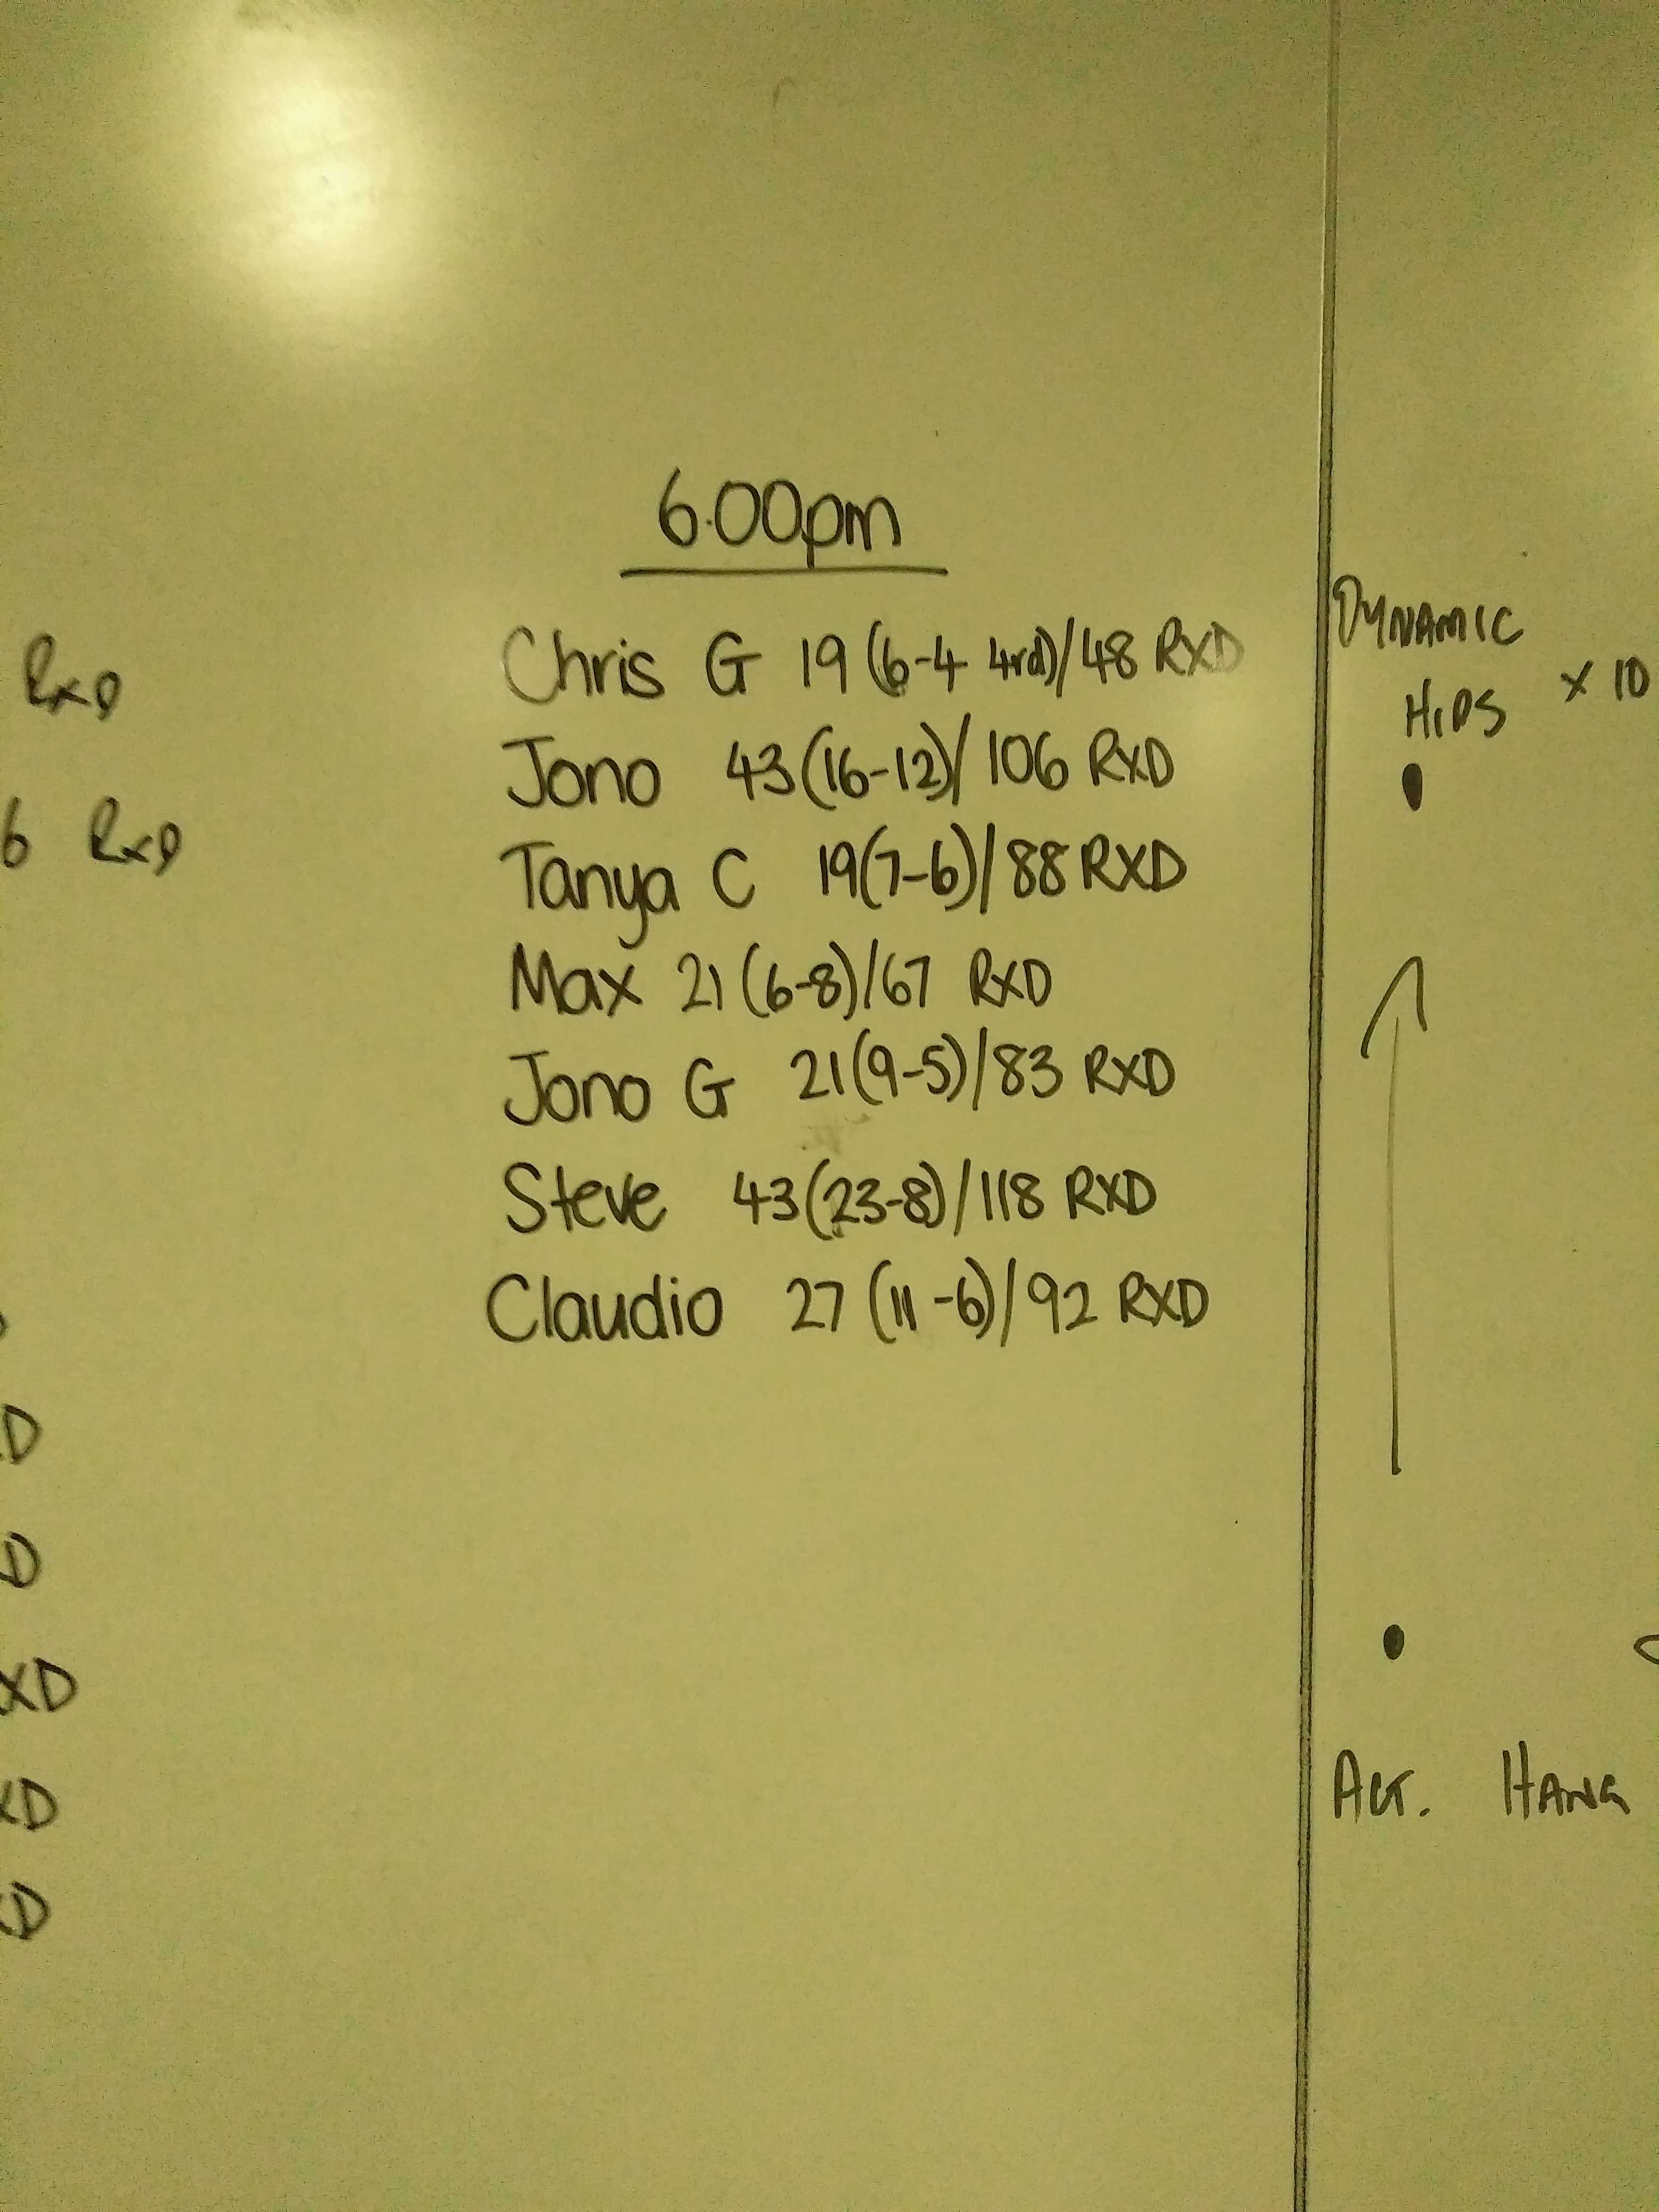 6.00pm
Chris G 19 (6-4 4rd)/48 RXD
Jono 43(16-12)/106 RXD
Tanya C 19(7-6)/88 RXD
Max 21 (6-8)/67 RXD
Jono G 21(9-5)/83 RXD
Steve 43(23-8)/118 RXD
Claudio 27 (11-6)/92 RXD
RxD
6 RxD
D
D
XD
XD
D
DYNAMIC
HIPS x 10
ACT. HANG